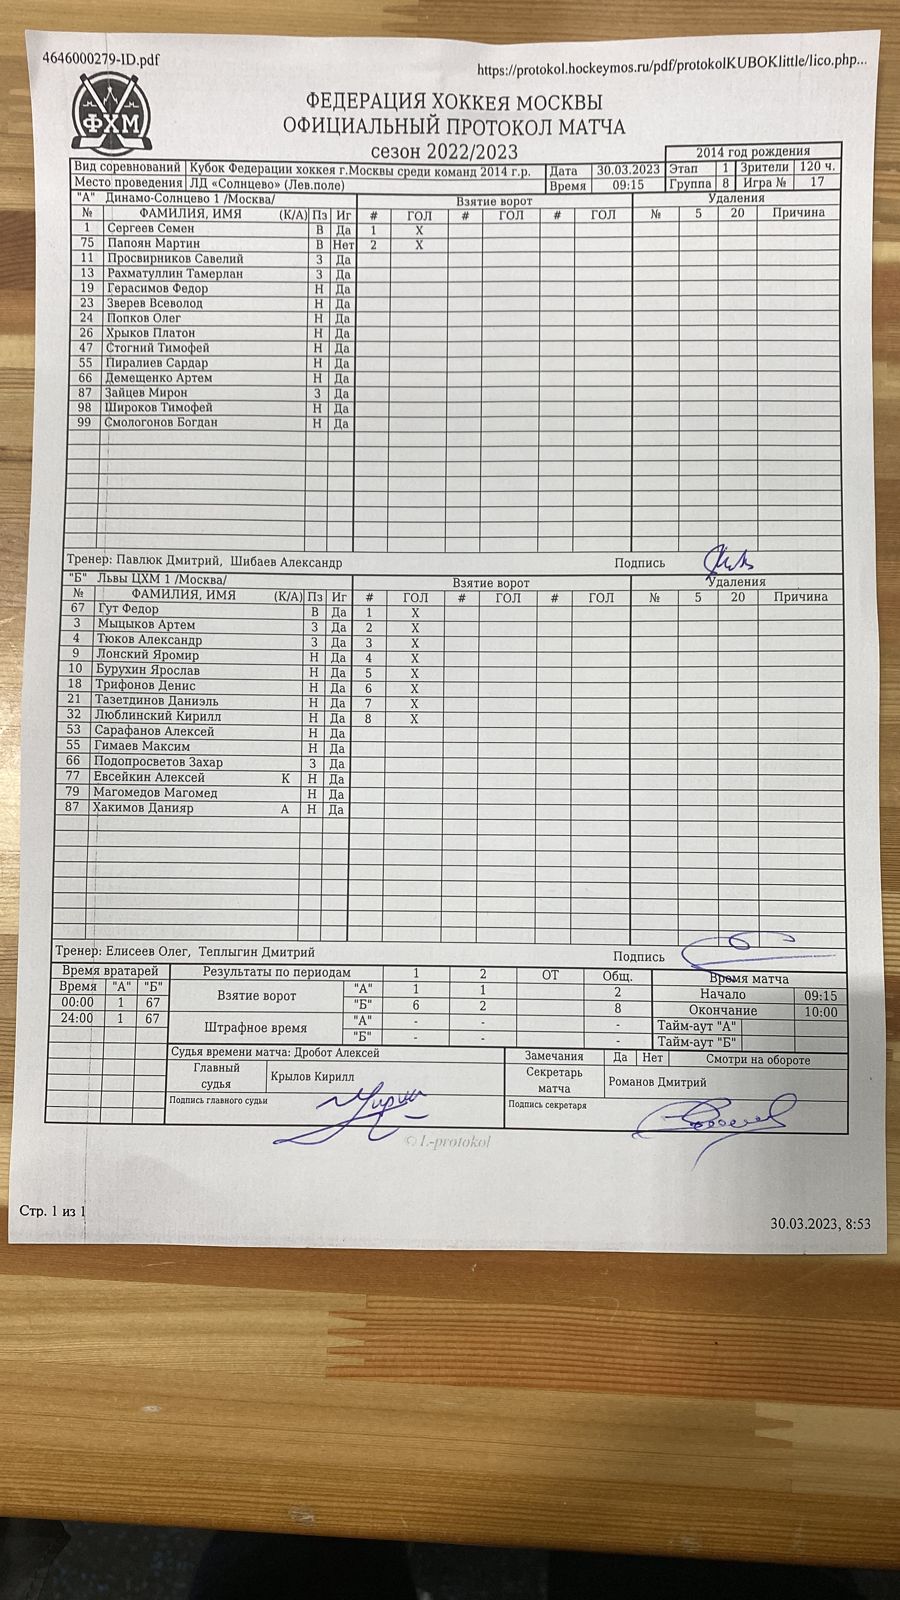 4646000279-1D.pdf https://protokol.hockeymos.ru/pdf/protokolKUBOKlittle/lico.php...
ФХМ
ФЕДЕРАЦИЯ ХОККЕЯ МОСКВЫ
ОФИЦИАЛЬНЫЙ ПРОТОКОЛ МАТЧА
сезон 2022/2023
2014 год рождения
Вид соревнований Кубок Федерации хоккея г.Москвы среди команд 2014 г.р. Дата 30.03.2023 Этап 1 Зрители 120 ч.
Место проведения ЛД «Солнцево» (Лев.поле) Время 09:15 Группа 8 Игра № 17
"А" Динамо-Солнцево 1 /Москва/ Взятие ворот Удаления
№ ФАМИЛИЯ, ИМЯ (К/А) Пз Иг # ГОЛ # ГОЛ # ГОЛ № 5 20 Причина
1 Сергеев Семен В Да 1 X
75 Папоян Мартин В Нет 2 X
11 Просвирников Савелий З Да
13 Рахматуллин Тамерлан З Да
19 Герасимов Федор Н Да
23 Зверев Всеволод Н Да
24 Попков Олег Н Да
26 Хрыков Платон Н Да
47 Стогний Тимофей Н Да
55 Пиралиев Сардар Н Да
66 Демещенко Артем Н Да
87 Зайцев Мирон З Да
98 Широков Тимофей Н Да
99 Смологонов Богдан Н Да
Тренер: Павлюк Дмитрий, Шибаев Александр Подпись
"Б" Львы ЦХМ 1 /Москва/ Взятие ворот Удаления
№ ФАМИЛИЯ, ИМЯ (К/А) Пз Иг # ГОЛ # ГОЛ # ГОЛ № 5 20 Причина
67 Гут Федор В Да 1 X
3 Мыцыков Артем З Да 2 X
4 Тюков Александр З Да 3 X
9 Лонский Яромир Н Да 4 X
10 Бурухин Ярослав Н Да 5 X
18 Трифонов Денис Н Да 6 X
21 Тазетдинов Даниэль Н Да 7 X
32 Люблинский Кирилл Н Да 8 X
53 Сарафанов Алексей Н Да
55 Гимаев Максим Н Да
66 Подопросветов Захар З Да
77 Евсейкин Алексей К Н Да
79 Магомедов Магомед Н Да
87 Хакимов Данияр А Н Да
Тренер: Елисеев Олег, Теплыгин Дмитрий Подпись
Время вратарей Результаты по периодам 1 2 ОТ Общ. Время матча
Время "А" "Б" Взятие ворот "А" 1 1 2 Начало 09:15
00:00 1 67 "Б" 6 2 8 Окончание 10:00
24:00 1 67 Штрафное время "А" - - - Тайм-аут "А"
"Б" - - - Тайм-аут "Б"
Судья времени матча: Дробот Алексей Замечания Да Нет Смотри на обороте
Главный судья Крылов Кирилл Секретарь матча Романов Дмитрий
Подпись главного судьи Подпись секретаря
© L-protokol
Стр. 1 из 1 30.03.2023, 8:53